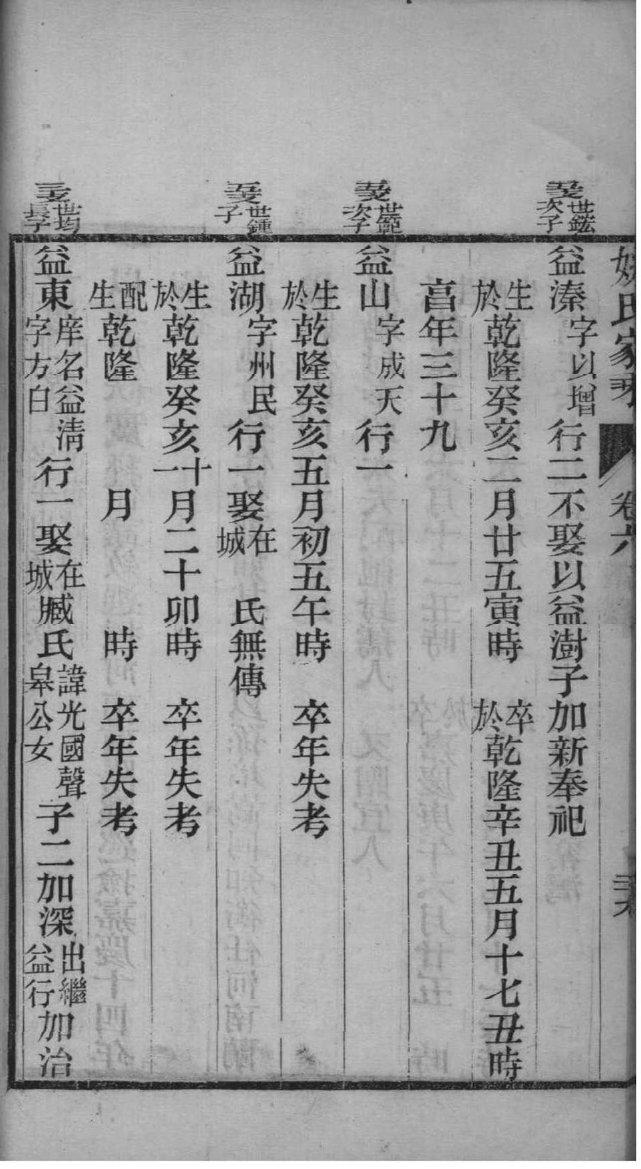 氏家乘 卷六
世鋐次子
益溱字以增行二不娶以益澍子加新奉祀
生於乾隆癸亥二月廿五寅時 卒於乾隆辛丑五月十七丑時
言年三十九
世範次子
益山字成天行一
生於乾隆癸亥五月初五午時 卒年失考
世鍾子
益湖字州民行一娶在城 氏無傳
生於乾隆癸亥十一月二十卯時 卒年失考
配生乾隆 月 時 卒年失考
世均長子
益東庠名益清字方白行一娶在城臧氏諱光國聲皋公女子二加深出繼益行加治